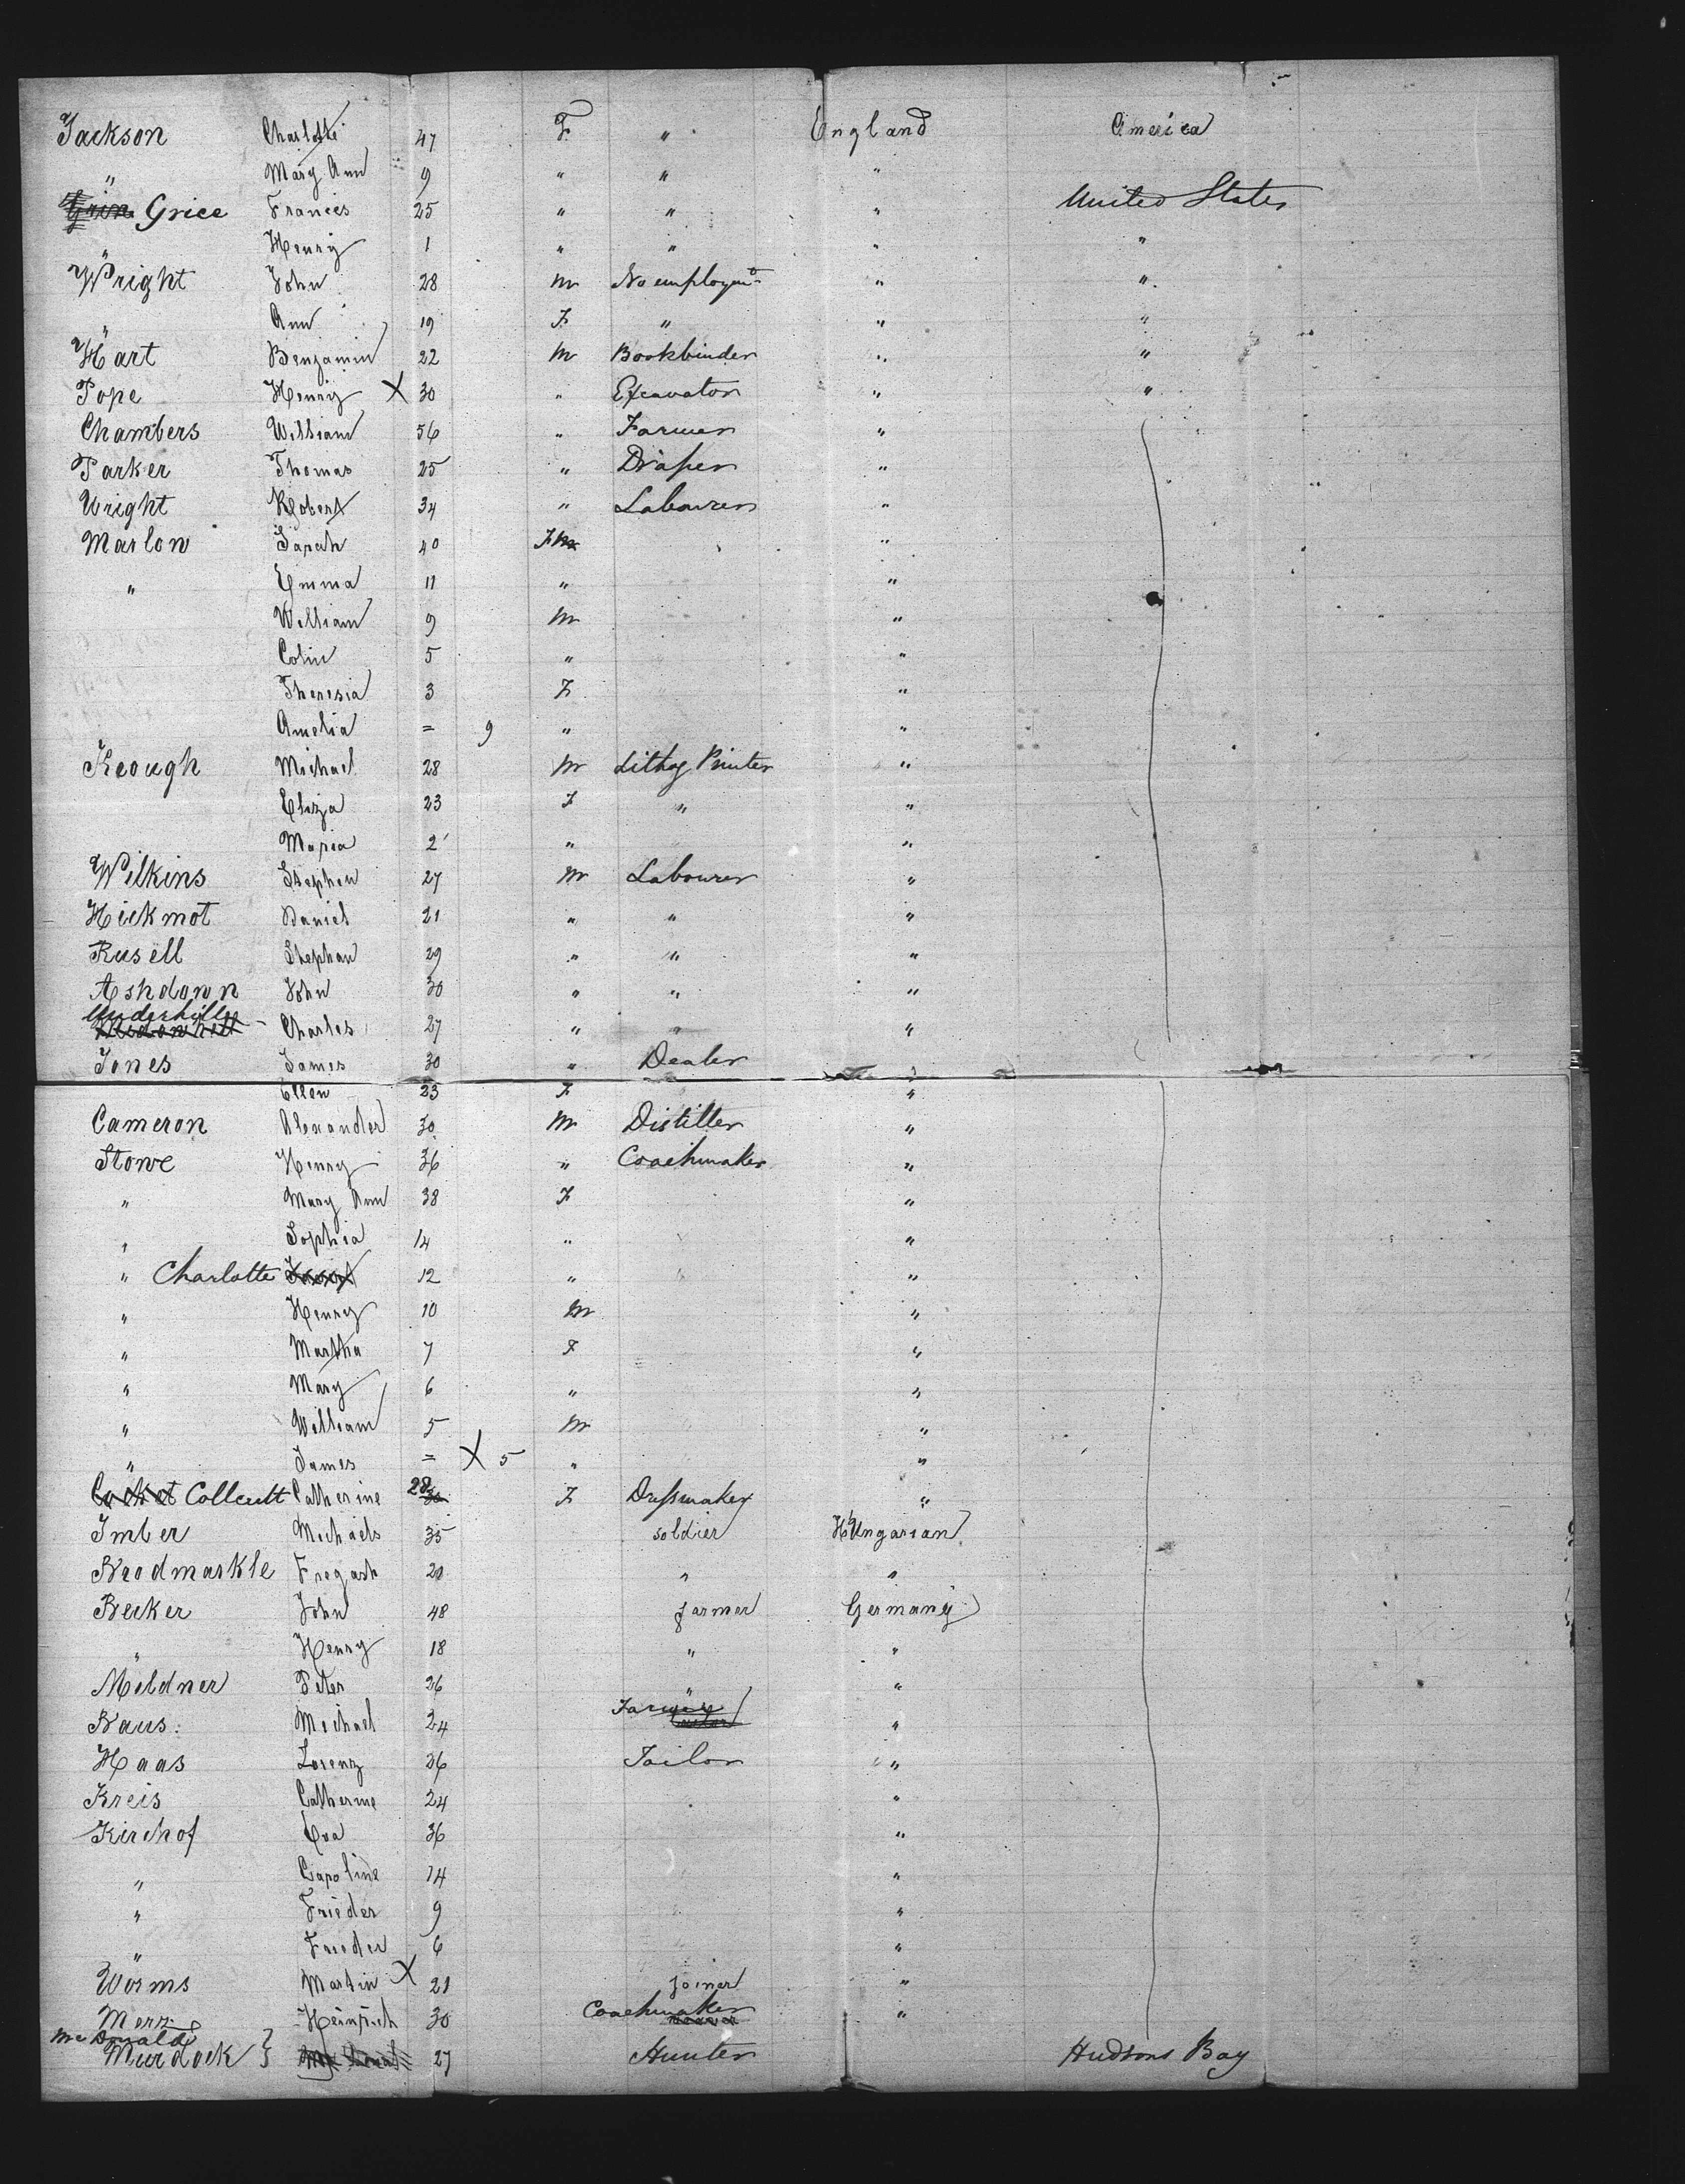 Jackson Charlotte 47 F " England America
" Mary Ann 9 " " "
Grice Frances 25 " " " United States
" Henry 1 " " " "
Wright John 28 M No employmt " "
" Ann 19 F " " "
Hart Benjamin 22 M Bookbinder " "
Pope Henry X 30 " Excavator " "
Chambers William 56 " Farmer "
Parker Thomas 25 " Draper "
Wright Robert 34 " Labourer "
Marlow Sarah 40 F "
" Emma 11 " "
William 9 M "
Colin 5 " "
Theresia 3 F "
Amelia = 9 " "
Keough Michael 28 M Lithog Printer "
Eliza 23 F " "
Maria 2 " "
Wilkins Stephen 27 M Labourer "
Hickmot Daniel 21 " " "
Rusell Stephan 29 " " "
Ashdown John 30 " " "
Underhill Charles 27 " " "
Jones James 30 " Dealer "
Ellen 23 F "
Cameron Alexander 30 M Distiller "
Stowe Henry 36 " Coachmaker "
" Mary Ann 38 F "
" Sophia 14 " "
" Charlotte 12 " "
" Henry 10 M "
" Martha 7 F "
" Mary 6 " "
" William 5 M "
" James = X 5 " "
Collcutt Catherine 28 F Dressmaker "
Imber Michaels 35 soldier Hungarian
Brodmarkle 20 " "
Becker John 48 farmer Germany
" Henry 18 " "
Mildner Peter 26 " "
Naus Michael 24 Farmer "
Haas Lorenz 26 Tailor "
Kreis Catherine 24 "
Kirchof Eva 36 "
" Caroline 14 "
" Frieder 9 "
" Frieder 6 "
Worms Martin X 21 Joiner "
Merz Heinrich 30 Coachmaker "
Mc Donald
Murdock } 27 Hunter Hudsons Bay